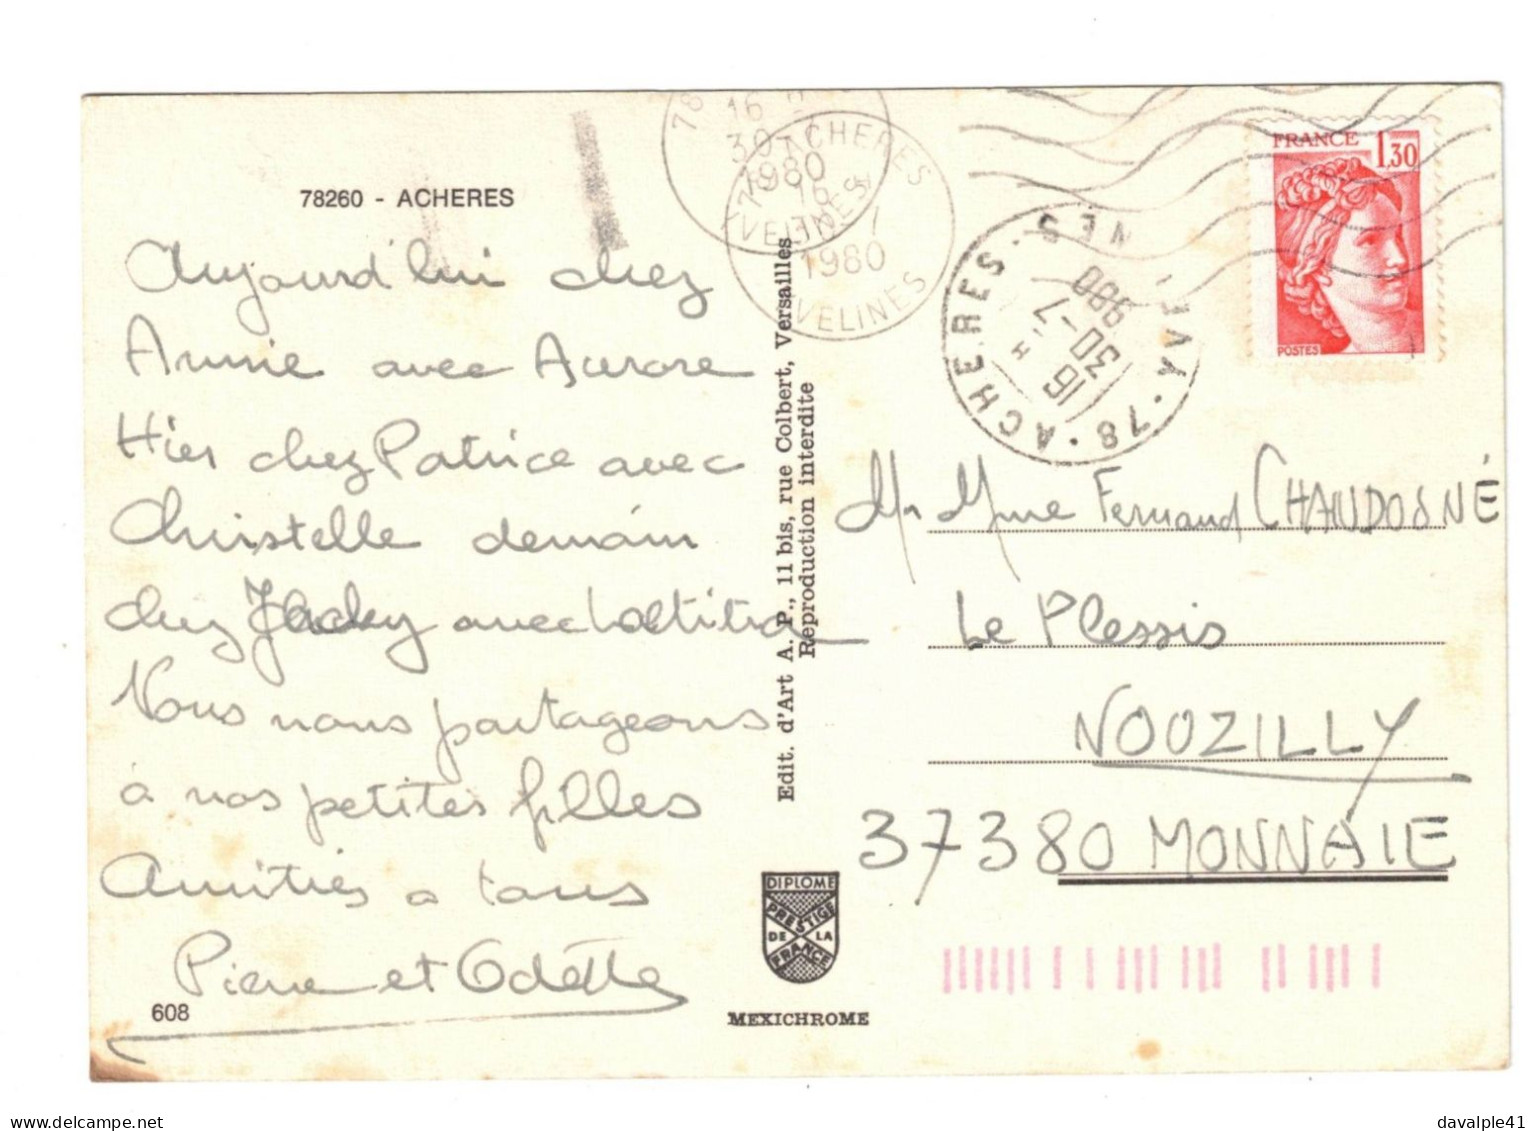 78260 - ACHERES
Aujourd'hui chez
Annie avec Aurore
Hier chez Patrice avec
Christelle demain
chez Jacky avec Laetitia
Nous nous partageons
à nos petites filles
Amitiés a tous
Pierre et Odette
608
Edit. d'Art A. P., 11 bis, rue Colbert, Versailles
Reproduction interdite
DIPLOME
PRESTIGE
DE LA
FRANCE
MEXICHROME
78
16 H
30-7
1980
YVELINES
78 ACHERES
16 H
1980
YVELINES
78 · ACHERES · YVELINES
16 H
30-7
1980
FRANCE 1,30
POSTES
Mr Mme Fernand CHAUDOSNÉ
Le Plessis
NOUZILLY
37380 MONNAIE
davalple41